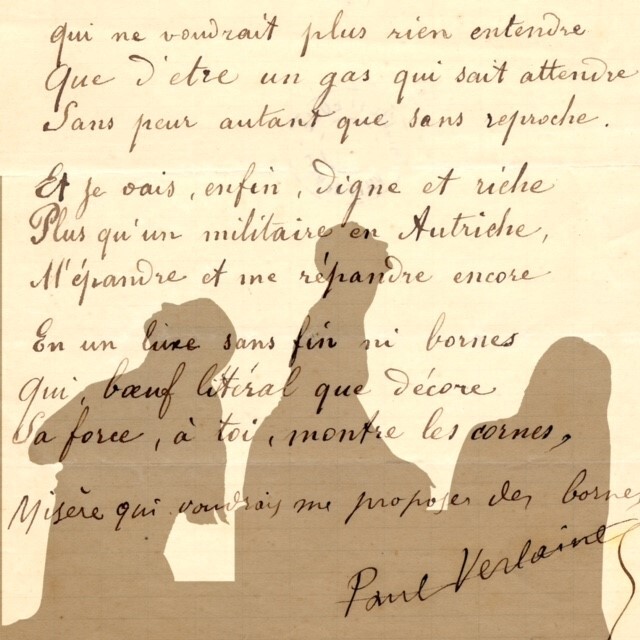 qui ne voudrait plus rien entendre
Que d'etre un gas qui sait attendre
Sans peur autant que sans reproche.
Et je vais, enfin, digne et riche
Plus qu'un militaire en Autriche,
M'épandre et me répandre encore
En un luxe sans fin ni bornes
Qui, bœuf littéral que décore
Sa force, à toi, montre les cornes,
Misère qui voudrais me proposer des bornes
Paul Verlaine